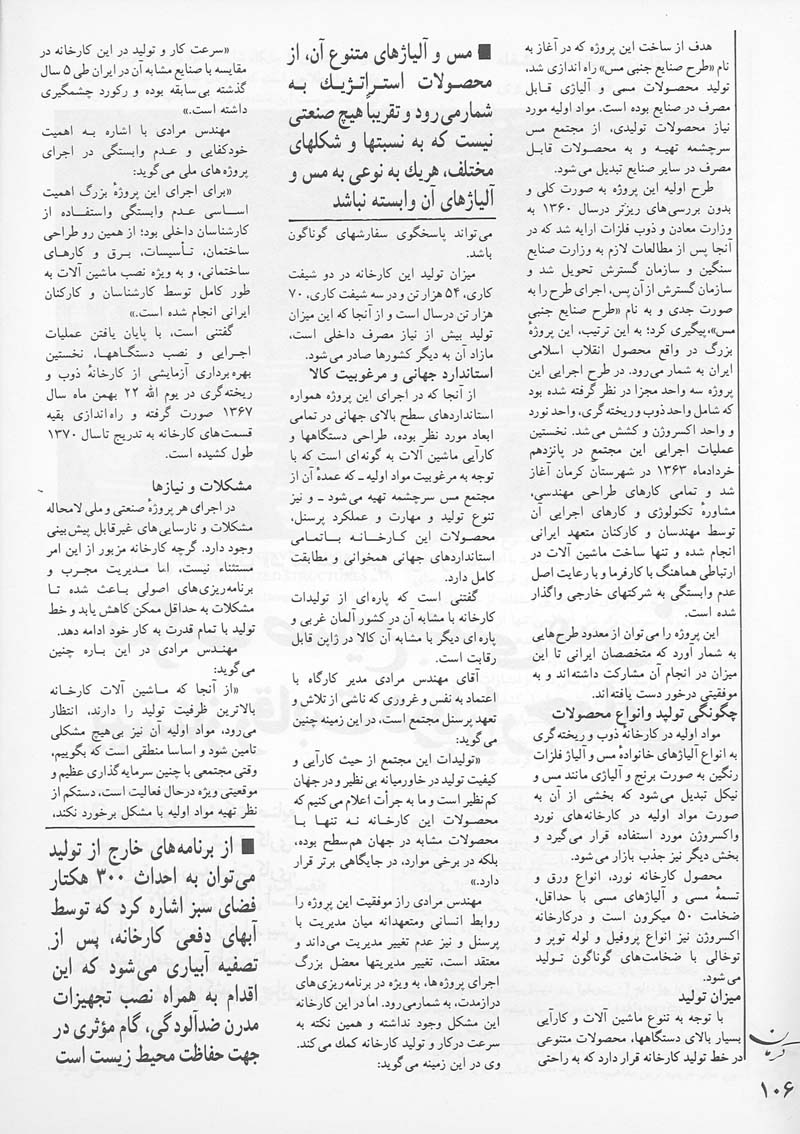 هدف از ساخت این پروژه که در آغاز به
نام «طرح صنایع جنبی مس» راه‌اندازی شد،
تولید محصولات مسی و آلیاژی قابل
مصرف در صنایع بوده است. مواد اولیه مورد
نیاز محصولات تولیدی، از مجتمع مس
سرچشمه تهیه و به محصولات قابل
مصرف در سایر صنایع تبدیل می‌شود.
طرح اولیه این پروژه به صورت کلی و
بدون بررسی‌های ریزتر درسال ۱۳۶۰ به
وزارت معادن و ذوب فلزات ارایه شد که در
آنجا پس از مطالعات لازم به وزارت صنایع
سنگین و سازمان گسترش تحویل شد و
سازمان گسترش از آن پس، اجرای طرح را به
صورت جدی و به نام «طرح صنایع جنبی
مس»، پیگیری کرد؛ به این ترتیب، این پروژهٔ
بزرگ در واقع محصول انقلاب اسلامی
ایران به شمار می‌رود. در طرح اجرایی این
پروژه سه واحد مجزا در نظر گرفته شده بود
که شامل واحد ذوب و ریخته‌گری، واحد نورد
و واحد اکسروژن و کشش می‌شد. نخستین
عملیات اجرایی این مجتمع در پانزدهم
خردادماه ۱۳۶۳ در شهرستان کرمان آغاز
شد و تمامی کارهای طراحی مهندسی،
مشاورهٔ تکنولوژی و کارهای اجرایی آن
توسط مهندسان و کارکنان متعهد ایرانی
انجام شده و تنها ساخت ماشین آلات در
ارتباطی هماهنگ با کارفرما و با رعایت اصل
عدم وابستگی به شرکتهای خارجی واگذار
شده است.
این پروژه را می‌توان از معدود طرح‌هایی
به شمار آورد که متخصصان ایرانی تا این
میزان در انجام آن مشارکت داشته‌اند و به
موفقیتی درخور دست یافته‌اند.
چگونگی تولید وانواع محصولات
مواد اولیه در کارخانهٔ ذوب و ریخته‌گری
به انواع آلیاژهای خانوادهٔ مس و آلیاژ فلزات
رنگین به صورت برنج و آلیاژی مانند مس و
نیکل تبدیل می‌شود که بخشی از آن به
صورت مواد اولیه در کارخانه‌های نورد
واکسروژن مورد استفاده قرار می‌گیرد و
بخش دیگر نیز جذب بازار می‌شود.
محصول کارخانه نورد، انواع ورق و
تسمهٔ مسی و آلیاژهای مسی با حداقل،
ضخامت ۵۰ میکرون است و درکارخانه
اکسروژن نیز انواع پروفیل و لوله توپر و
توخالی با ضخامت‌های گوناگون تولید
می‌شود.
میزان تولید
با توجه به تنوع ماشین آلات و کارآیی
بسیار بالای دستگاهها، محصولات متنوعی
در خط تولید کارخانه قرار دارد که به راحتی
■ مس و آلیاژهای متنوع آن، از
محصولات استراتژیك به
شمارمی‌رود و تقریباً هیچ صنعتی
نیست که به نسبتها و شکلهای
مختلف، هریك به نوعی به مس و
آلیاژهای آن وابسته نباشد
می‌تواند پاسخگوی سفارشهای گوناگون
باشد.
میزان تولید این کارخانه در دو شیفت
کاری، ۵۴ هزار تن و در سه شیفت کاری، ۷۰
هزار تن درسال است و از آنجا که این میزان
تولید بیش از نیاز مصرف داخلی است،
مازاد آن به دیگر کشورها صادر می‌شود.
استاندارد جهانی و مرغوبیت کالا
از آنجا که در اجرای این پروژه همواره
استانداردهای سطح بالای جهانی در تمامی
ابعاد مورد نظر بوده، طراحی دستگاهها و
کارآیی ماشین آلات به گونه‌ای است که با
توجه به مرغوبیت مواد اولیه ـ که عمدهٔ آن از
مجتمع مس سرچشمه تهیه می‌شود ـ و نیز
تنوع تولید و مهارت و عملکرد پرسنل،
محصولات این کارخانه باتمامی
استانداردهای جهانی همخوانی و مطابقت
کامل دارد.
گفتنی است که پاره‌ای از تولیدات
کارخانه با مشابه آن در کشور آلمان غربی و
پاره‌ای دیگر با مشابه آن کالا در ژاپن قابل
رقابت است.
آقای مهندس مرادی مدیر کارگاه با
اعتماد به نفس و غروری که ناشی از تلاش و
تعهد پرسنل مجتمع است، در این زمینه چنین
می‌گوید:
«تولیدات این مجتمع از حیث کارآیی و
کیفیت تولید در خاورمیانه بی‌نظیر و در جهان
کم‌نظیر است و ما به جرأت اعلام می‌کنیم که
محصولات این کارخانه نه تنها با
محصولات مشابه در جهان هم‌سطح بوده،
بلکه در برخی موارد، در جایگاهی برتر قرار
دارد.»
مهندس مرادی راز موفقیت این پروژه را
روابط انسانی ومتعهدانه میان مدیریت با
پرسنل و نیز عدم تغییر مدیریت می‌داند و
معتقد است، تغییر مدیریتها معضل بزرگ
اجرای پروژه‌ها، به ویژه در برنامه‌ریزی‌های
درازمدت، به شمارمی‌رود. اما در این کارخانه
این مشکل وجود نداشته و همین نکته به
سرعت درکار و تولید کارخانه کمك می‌کند.
وی در این زمینه می‌گوید:
«سرعت کار و تولید در این کارخانه در
مقایسه با صنایع مشابه آن در ایران طی ۵ سال
گذشته بی‌سابقه بوده و رکورد چشمگیری
داشته است.»
مهندس مرادی با اشاره به اهمیت
خودکفایی و عدم وابستگی در اجرای
پروژه‌های ملی می‌گوید:
«برای اجرای این پروژهٔ بزرگ اهمیت
اساسی عدم وابستگی واستفاده از
کارشناسان داخلی بود؛ از همین رو طراحی
ساختمان، تأسیسات، برق و کارهای
ساختمانی، و به ویژه نصب ماشین آلات به
طور کامل توسط کارشناسان و کارکنان
ایرانی انجام شده است.»
گفتنی است، با پایان یافتن عملیات
اجرایی و نصب دستگاهها، نخستین
بهره‌برداری آزمایشی از کارخانهٔ ذوب و
ریخته‌گری در یوم الله ۲۲ بهمن ماه سال
۱۳۶۷ صورت گرفته و راه‌اندازی بقیه
قسمت‌های کارخانه به تدریج تاسال ۱۳۷۰
طول کشیده است.
مشکلات و نیازها
در اجرای هر پروژهٔ صنعتی و ملی لامحاله
مشکلات و نارسایی‌های غیرقابل پیش‌بینی
وجود دارد. گرچه کارخانه مزبور از این امر
مستثناء نیست، اما مدیریت مجرب و
برنامه‌ریزی‌های اصولی باعث شده تا
مشکلات به حداقل ممکن کاهش یابد و خط
تولید با تمام قدرت به کار خود ادامه دهد.
مهندس مرادی در این باره چنین
می‌گوید:
«از آنجا که ماشین آلات کارخانه
بالاترین ظرفیت تولید را دارند، انتظار
می‌رود، مواد اولیه آن نیز بی‌هیچ مشکلی
تامین شود و اساسا منطقی است که بگوییم،
وقتی مجتمعی با چنین سرمایه‌گذاری عظیم و
موقعیتی ویژه درحال فعالیت است، دستکم از
نظر تهیه مواد اولیه با مشکل برخورد نکند،
■ از برنامه‌های خارج از تولید
می‌توان به احداث ۳۰۰ هکتار
فضای سبز اشاره کرد که توسط
آبهای دفعی کارخانه، پس از
تصفیه آبیاری می‌شود که این
اقدام به همراه نصب تجهیزات
مدرن ضدآلودگی، گام مؤثری در
جهت حفاظت محیط زیست است
کرمان
۱۰۶